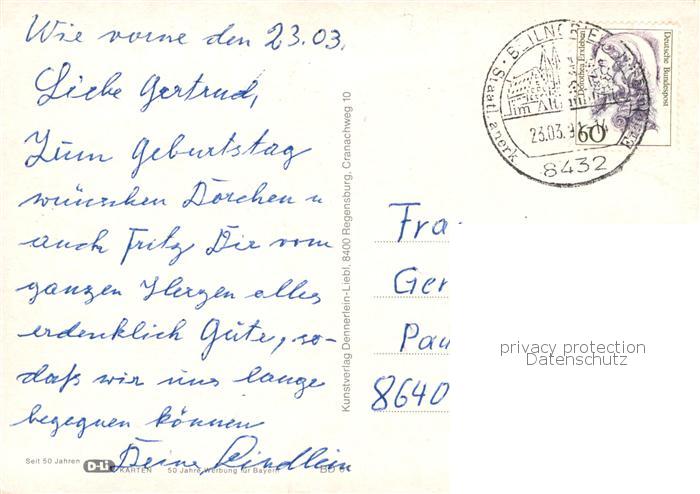 Wie vorne den 23.03.
Liebe Gertrud,
Zum Geburtstag
wünschen Dorchen u
auch Fritz Dir vom
ganzen Herzen alles
erdenklich Gute, so-
daß wir uns lange
begegnen können
Deine
Seit 50 Jahren D-Li KARTEN 50 Jahre Werbung für Bayern
Kunstverlag Dennerlein-Liebl, 8400 Regensburg, Cranachweg 10
BEILNGRIES
im Altmühltal
Staatl. anerk.
23.03.9
8432
Deutsche Bundespost
Dorothea Erxleben
60
Fra
Ger
Pau
8640
privacy protection
Datenschutz